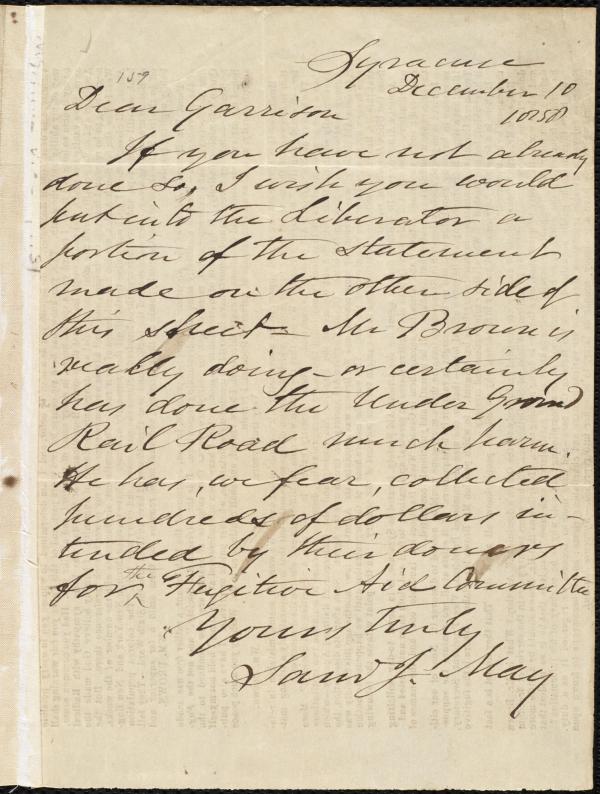 Syracuse
159
December 10
1858
Dear Garrison
If you have not already
done so, I wish you would
put into the Liberator a
portion of the statement
made on the other side of
this sheet — Mr Brown is
really doing — or certainly
has done the Under Ground
Rail Road much harm.
He has, we fear, collected
hundreds of dollars in-
tended by their donors
for the Fugitive Aid Committee
Yours truly
Saml J. May